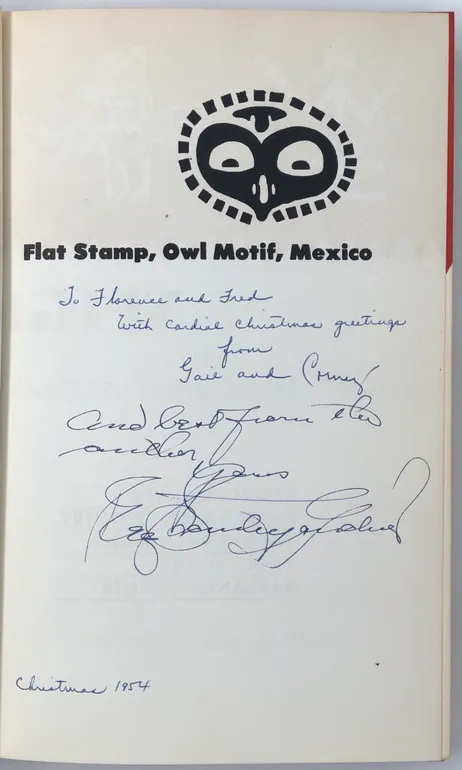 Flat Stamp, Owl Motif, Mexico
To Florence and Fred
With cordial Christmas greetings
from
Gail and
And best from the
author
Yours
Christmas 1954